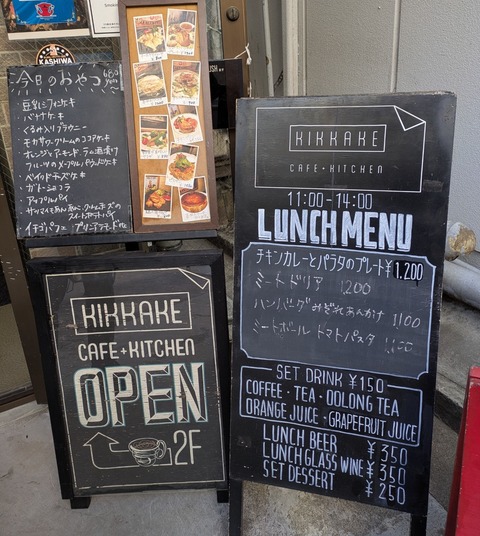 KASHIWA
今日のおやつ
豆乳シフォンケーキ
バナナケーキ
くるみ入りブラウニー
モカサワークリームのココアケーキ
オレンジとアーモンド、ラム酒漬け
フルーツのメープルパウンドケーキ
ベイクドチーズケーキ
ガトーショコラ
アップルパイ
イチゴパフェ
KIKKAKE
CAFE+KITCHEN
OPEN
2F
KIKKAKE
CAFE+KITCHEN
11:00-14:00
LUNCH MENU
チキンカレーとパラタのプレート¥1,200
ミートドリア 1200
ハンバーグみぞれあんかけ 1100
ミートボールトマトパスタ 1100
SET DRINK ¥150
COFFEE・TEA・OOLONG TEA
ORANGE JUICE・GRAPEFRUIT JUICE
LUNCH BEER ¥350
LUNCH GLASS WINE ¥350
SET DESSERT ¥250